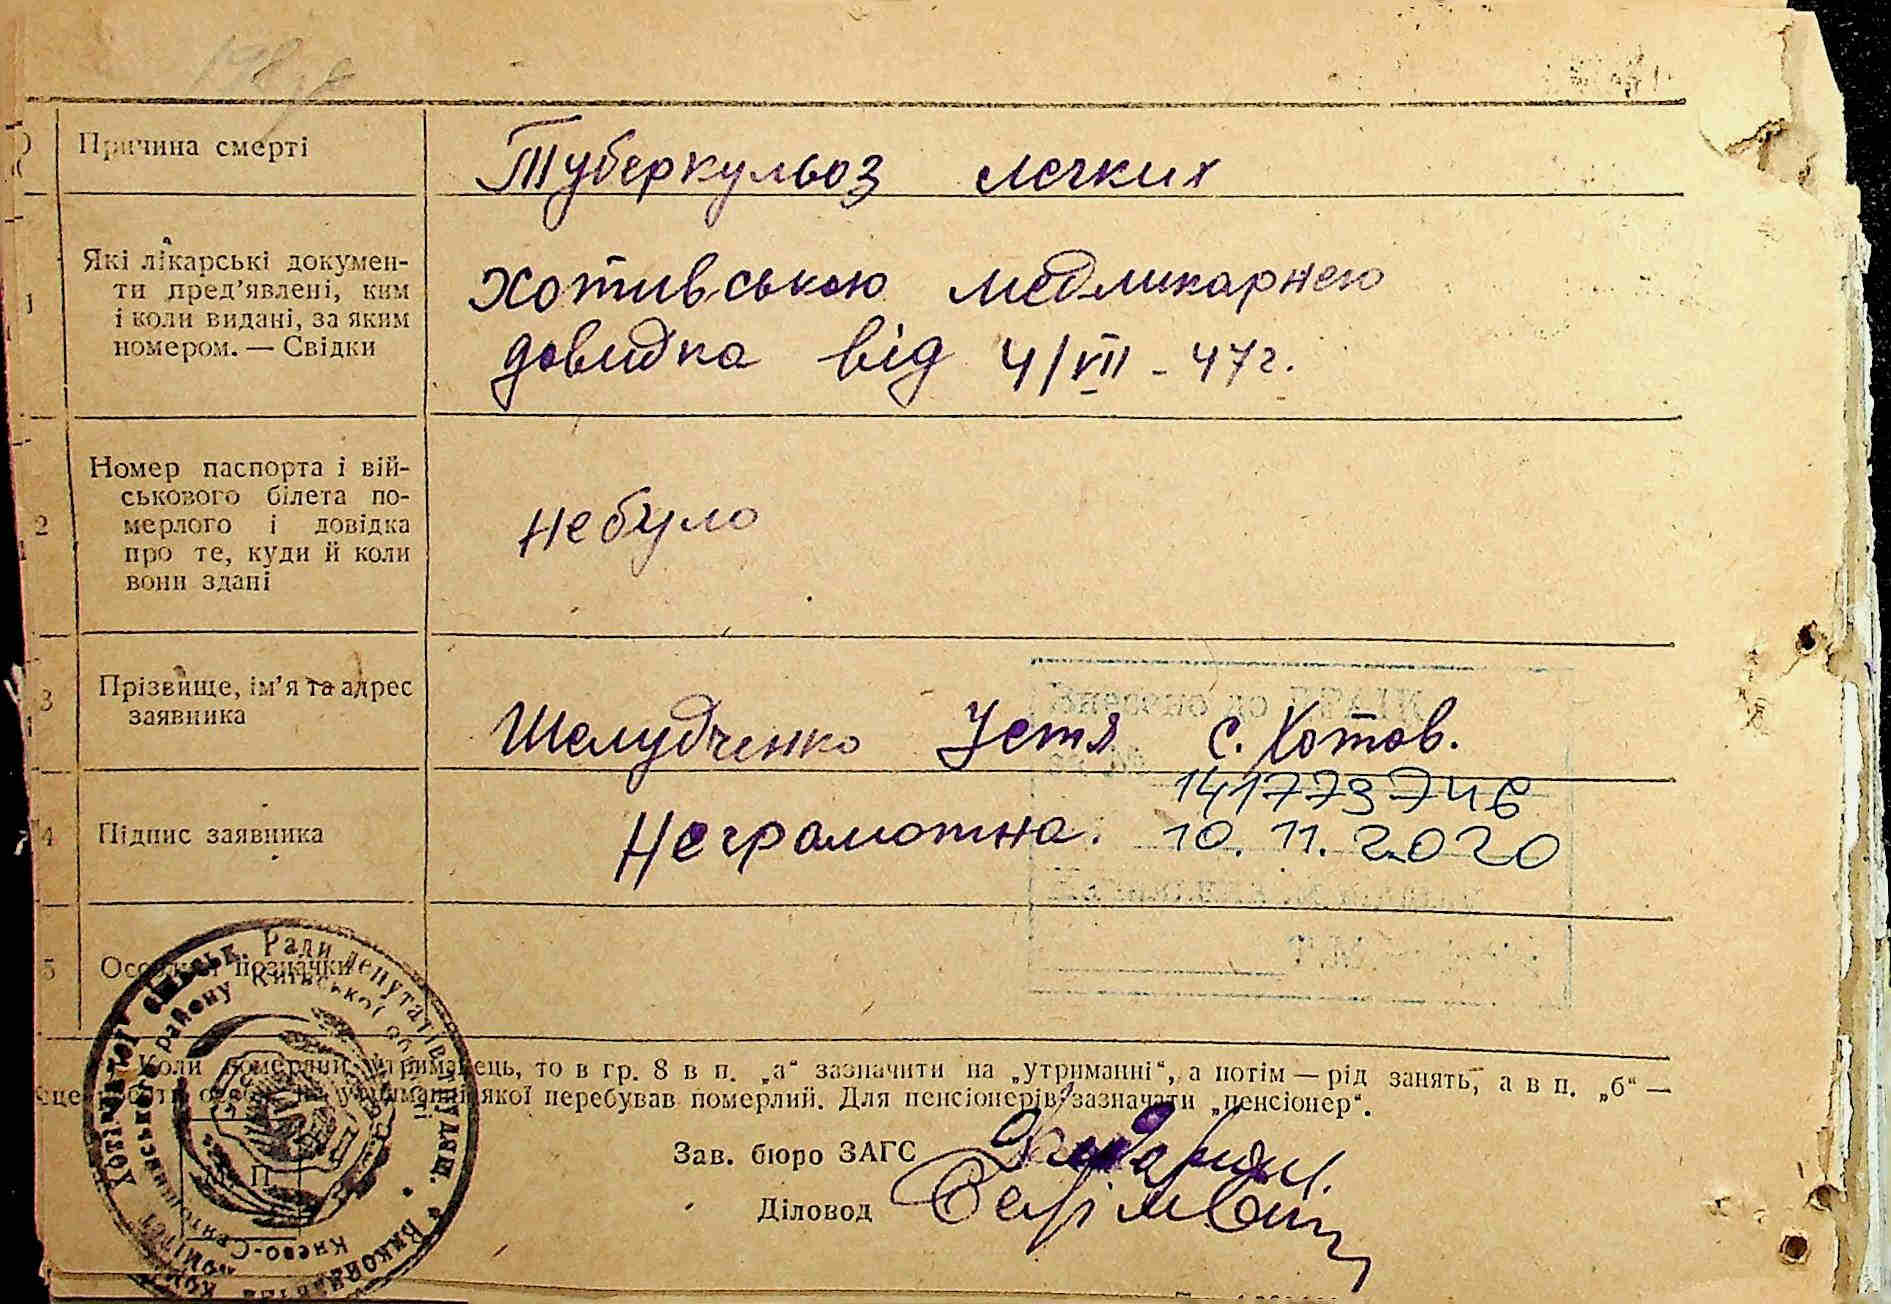 Причина смерті
Туберкульоз легких
1
Які лікарські докумен-
ти пред’явлені, ким
і коли видані, за яким
номером. — Свідки
Хотивською медликарнею
довидка від 4/VII - 47г.
2
Номер паспорта і вій-
ськового білета по-
мерлого і довідка
про те, куди й коли
вони здані
Небуло
3
Прізвище, ім’я та адрес
заявника
Шелудченко Устя с. Хотов.
141773746
4
Підпис заявника
Неграмотна.
10. 11. 2020
5
Особливі позначки
Коли померлий утриманець, то в гр. 8 в п. „а“ зазначити на „утриманні“, а потім — рід занять, а в п. „б“ —
якої перебував померлий. Для пенсіонерів зазначати „пенсіонер“.
Зав. бюро ЗАГС
Діловод
Хотівської сільськ. Ради депутатів трудящ. * Виконавчий комітет
Києво-Святошинського району Київської області